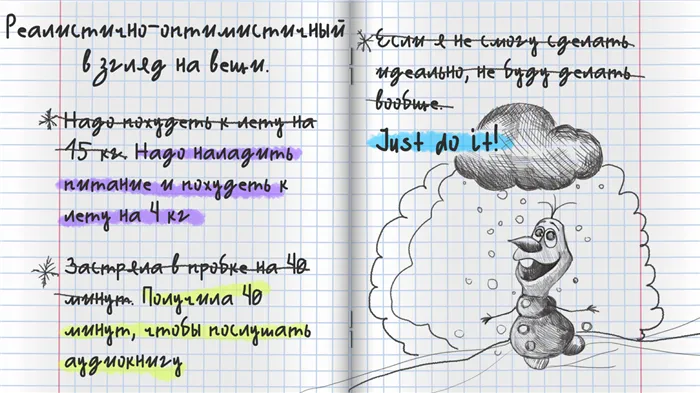 Реалистично-оптимистичный
взгляд на вещи.
* Надо похудеть к лету на
15 кг. Надо наладить
питание и похудеть к
лету на 4 кг
* Застряла в пробке на 40
минут. Получила 40
минут, чтобы послушать
аудиокнигу
* Если я не смогу сделать
идеально, не буду делать
вообще.
Just do it!